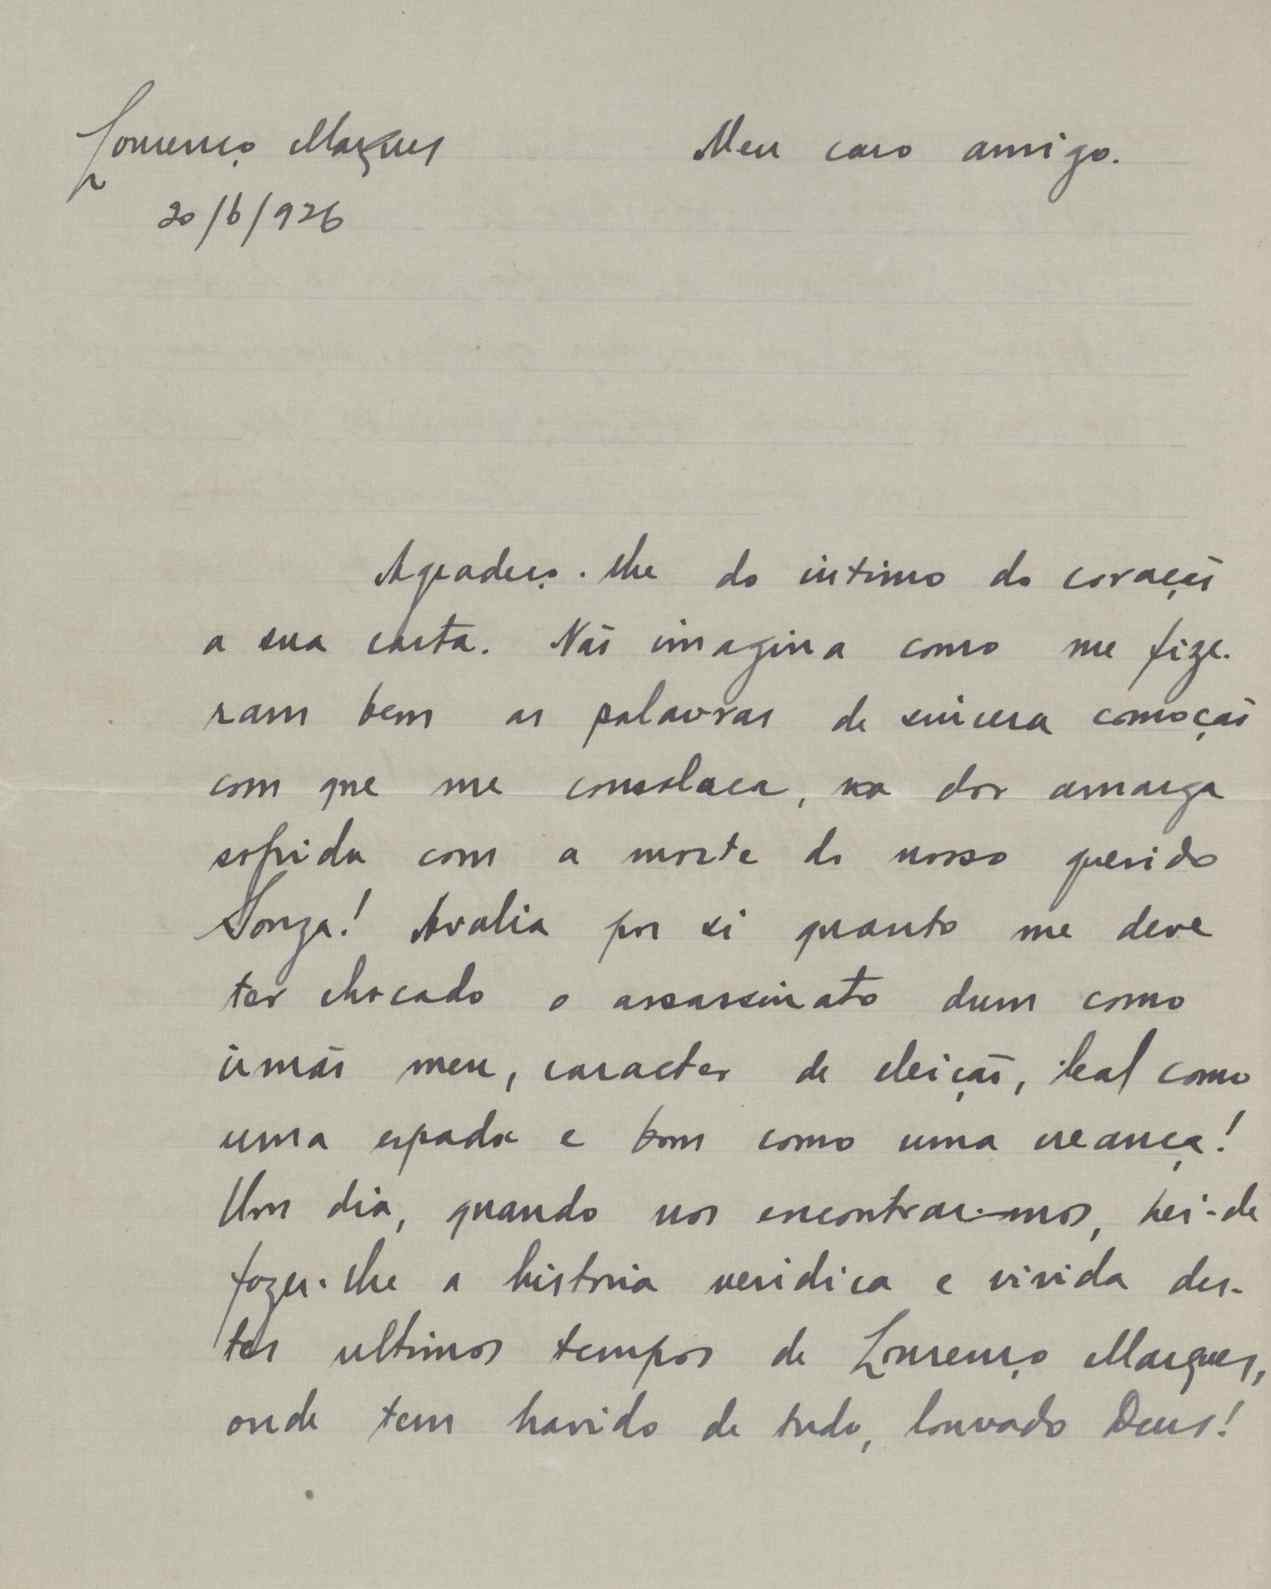 Lourenço Marques
20/6/926
Meu caro amigo.
Agradeço-lhe do intimo do coração
a sua carta. Não imagina como me fize-
ram bem as palavras de sincera comoção
com que me consolava, na dor amarga
sofrida com a morte do nosso querido
Souza! Avalia por si quanto me deve
ter chocado o assassinato dum como
irmão meu, caracter de eleição, leal como
uma espada e bom como uma creança!
Um dia, quando nos encontrar-mos, hei-de
fazer-lhe a historia veridica e vivida des-
tes ultimos tempos de Lourenço Marques,
onde tem havido de tudo, louvado Deus!